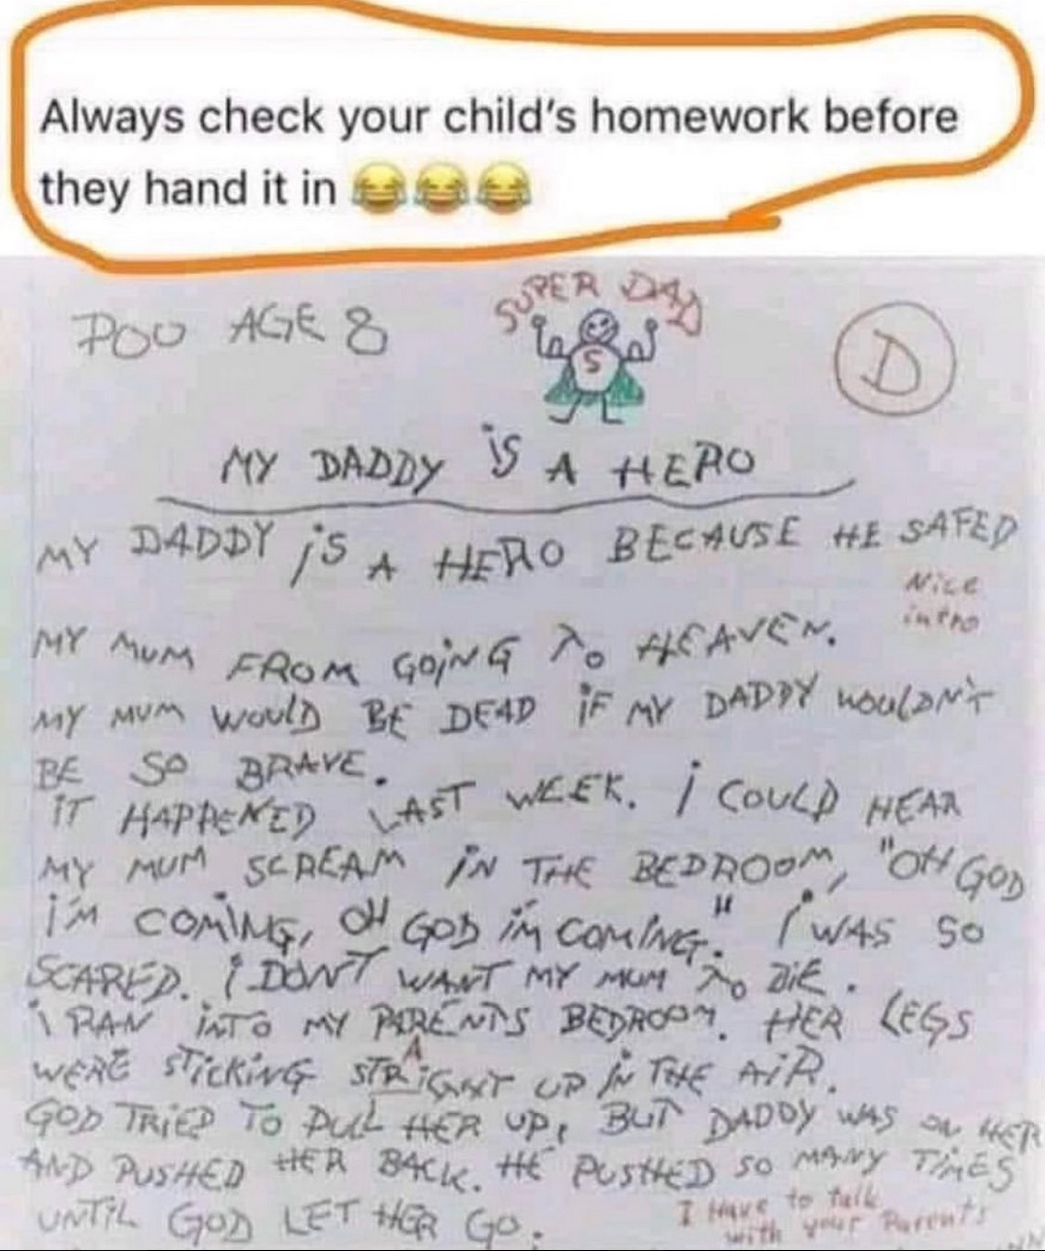 Always check your child's homework before
they hand it in 😂😂😂
POO AGE 8
SUPER DAD
S
D
MY DADDY iS A HERO
MY DADDY iS A HERO BECAUSE HE SAFED
Nice
intro
MY MUM FROM GOiNG TO HEAVEN.
MY MUM WOULD BE DEAD iF MY DADDY WOULDN'T
BE SO BRAVE.
iT HAPPENED LAST WEEK. i COULD HEAR
MY MUM SCREAM iN THE BEDROOM, "OH GOD
i'M COMiNG, OH GOD i'M COMiNG." i WAS SO
SCARED. i DON'T WANT MY MUM TO DiE.
i RAN iNTO MY PARENTS BEDROOM. HER LEGS
WERE STiCKiNG STRAiGHT UP iN THE AiR.
GOD TRiED TO PULL HER UP, BUT DADDY WAS ON HER
AND PUSHED HER BACK. HE PUSHED SO MANY TiMES
UNTiL GOD LET HER GO.
I Have to talk
with your Parents